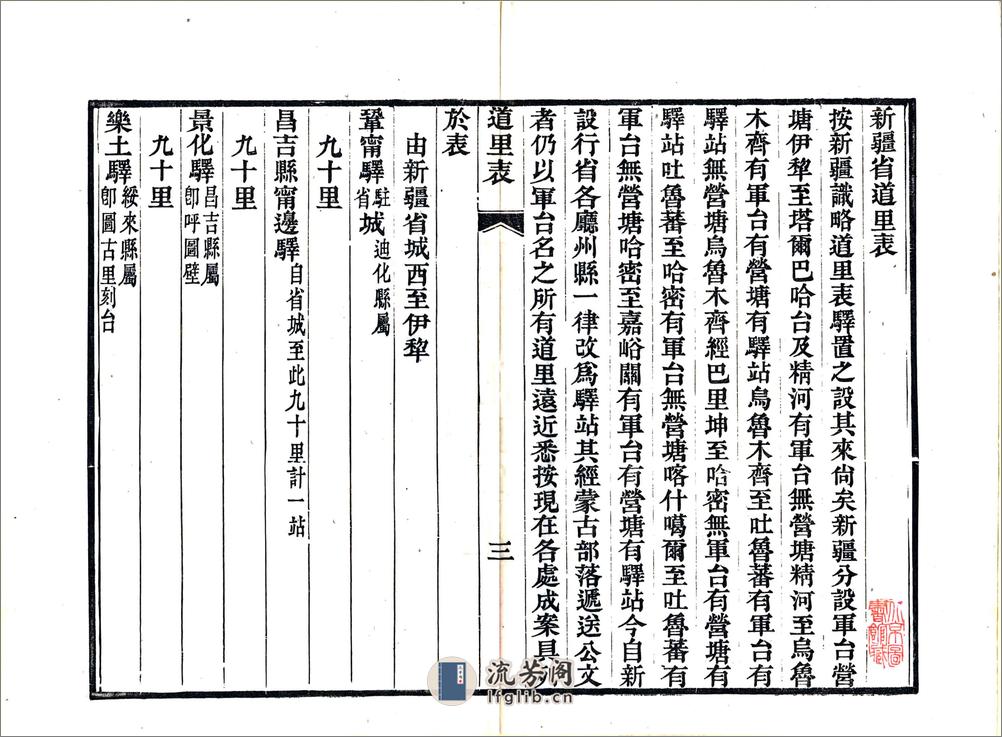 新疆省道里表
按新疆識略道里表驛置之設其來尙矣新疆分設軍台營
塘伊犂至塔爾巴哈台及精河有軍台無營塘精河至烏魯
木齊有軍台有營塘有驛站烏魯木齊至吐魯蕃有軍台有
驛站無營塘烏魯木齊經巴里坤至哈密無軍台有營塘有
驛站吐魯蕃至哈密有軍台無營塘喀什噶爾至吐魯蕃有
軍台無營塘哈密至嘉峪關有軍台有營塘有驛站今自新
設行省各廳州縣一律改爲驛站其經蒙古部落遞送公文
者仍以軍台名之所有道里遠近悉按現在各處成案具
道里表
三
於表
由新疆省城西至伊犂
鞏甯驛駐省城迪化縣屬
九十里
昌吉縣甯邊驛自省城至此九十里計一站
九十里
景化驛昌吉縣屬卽呼圖壁
九十里
樂土驛綏來縣屬卽圖古里刻台
流芳阁
lfglib.cn